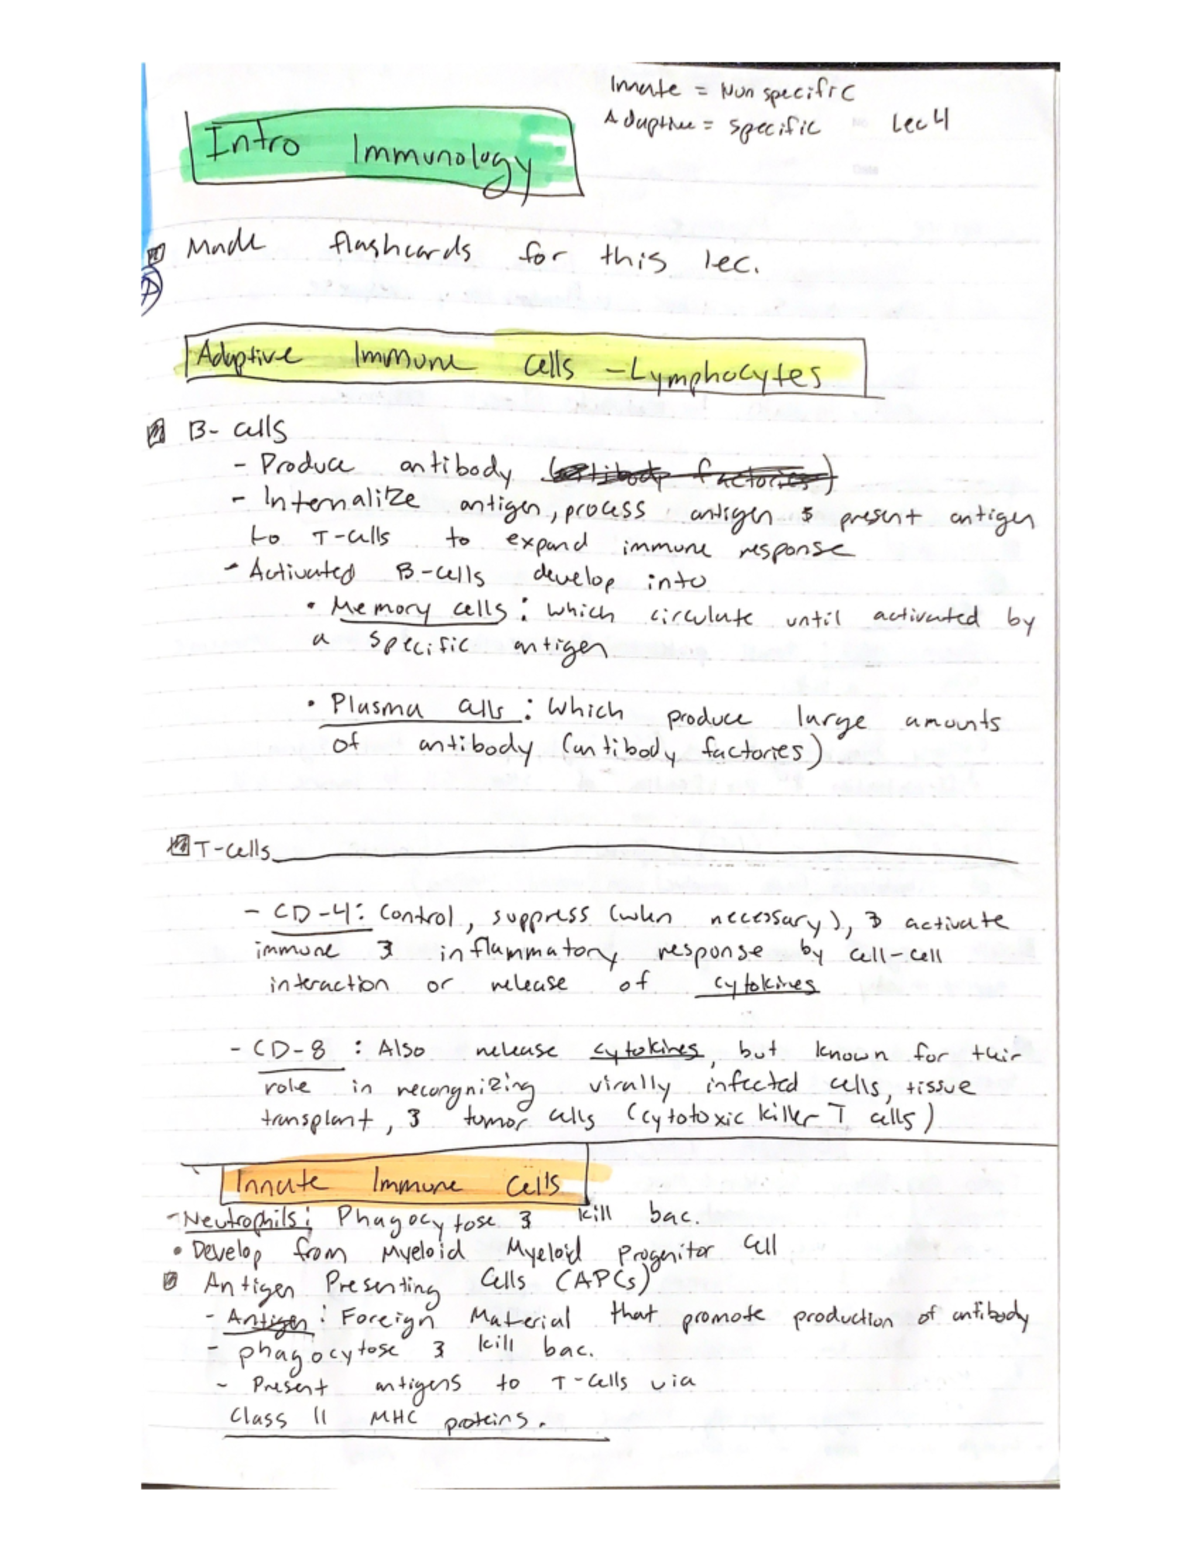 Innate = Nonspecific
Adaptive = specific Lec 4
Intro Immunology
Made flashcards for this lec.
Adaptive Immune Cells - Lymphocytes
B- cells
- Produce antibody (antibody factories)
- Internalize antigen, process antigen & present antigen
to T-cells to expand immune response
- Activated B-cells develop into
• Memory cells: which circulate until activated by
a specific antigen
• Plasma cells: which produce large amounts
of antibody (antibody factories)
T-cells
- CD-4: Control, suppress (when necessary), & activate
immune & inflammatory response by cell-cell
interaction or release of cytokines
- CD-8: Also release cytokines, but known for their
role in recongnizing virally infected cells, tissue
transplant, & tumor cells (cytotoxic killer T cells)
Innate Immune Cells
- Neutrophils: Phagocytose & kill bac.
• Develop from Myeloid Myeloid Progenitor cell
Antigen Presenting Cells (APCs)
- Antigen: Foreign Material that promote production of antibody
- phagocytose & kill bac.
- Present antigens to T-cells via
Class II MHC proteins.